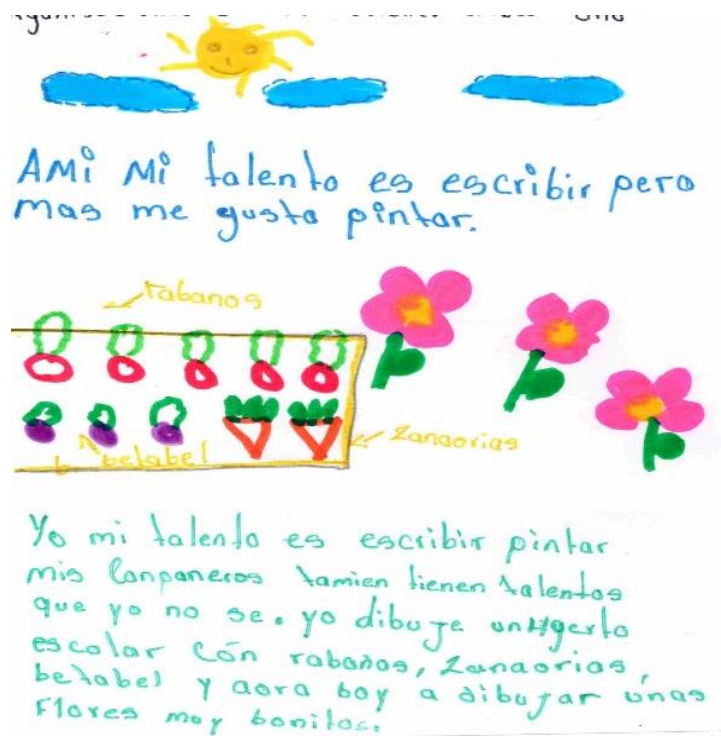 AMi Mi talento es escribir pero
mas me gusta pintar.
rabanos
zanaorias
betabel
Yo mi talento es escribir pintar
mis Conpaneros tamien tienen talentos
que yo no se. yo dibuje un Hgerto
escolar con rabanos, zanaorias,
betabel y aora boy a dibujar unas
Flores moy bonitas.